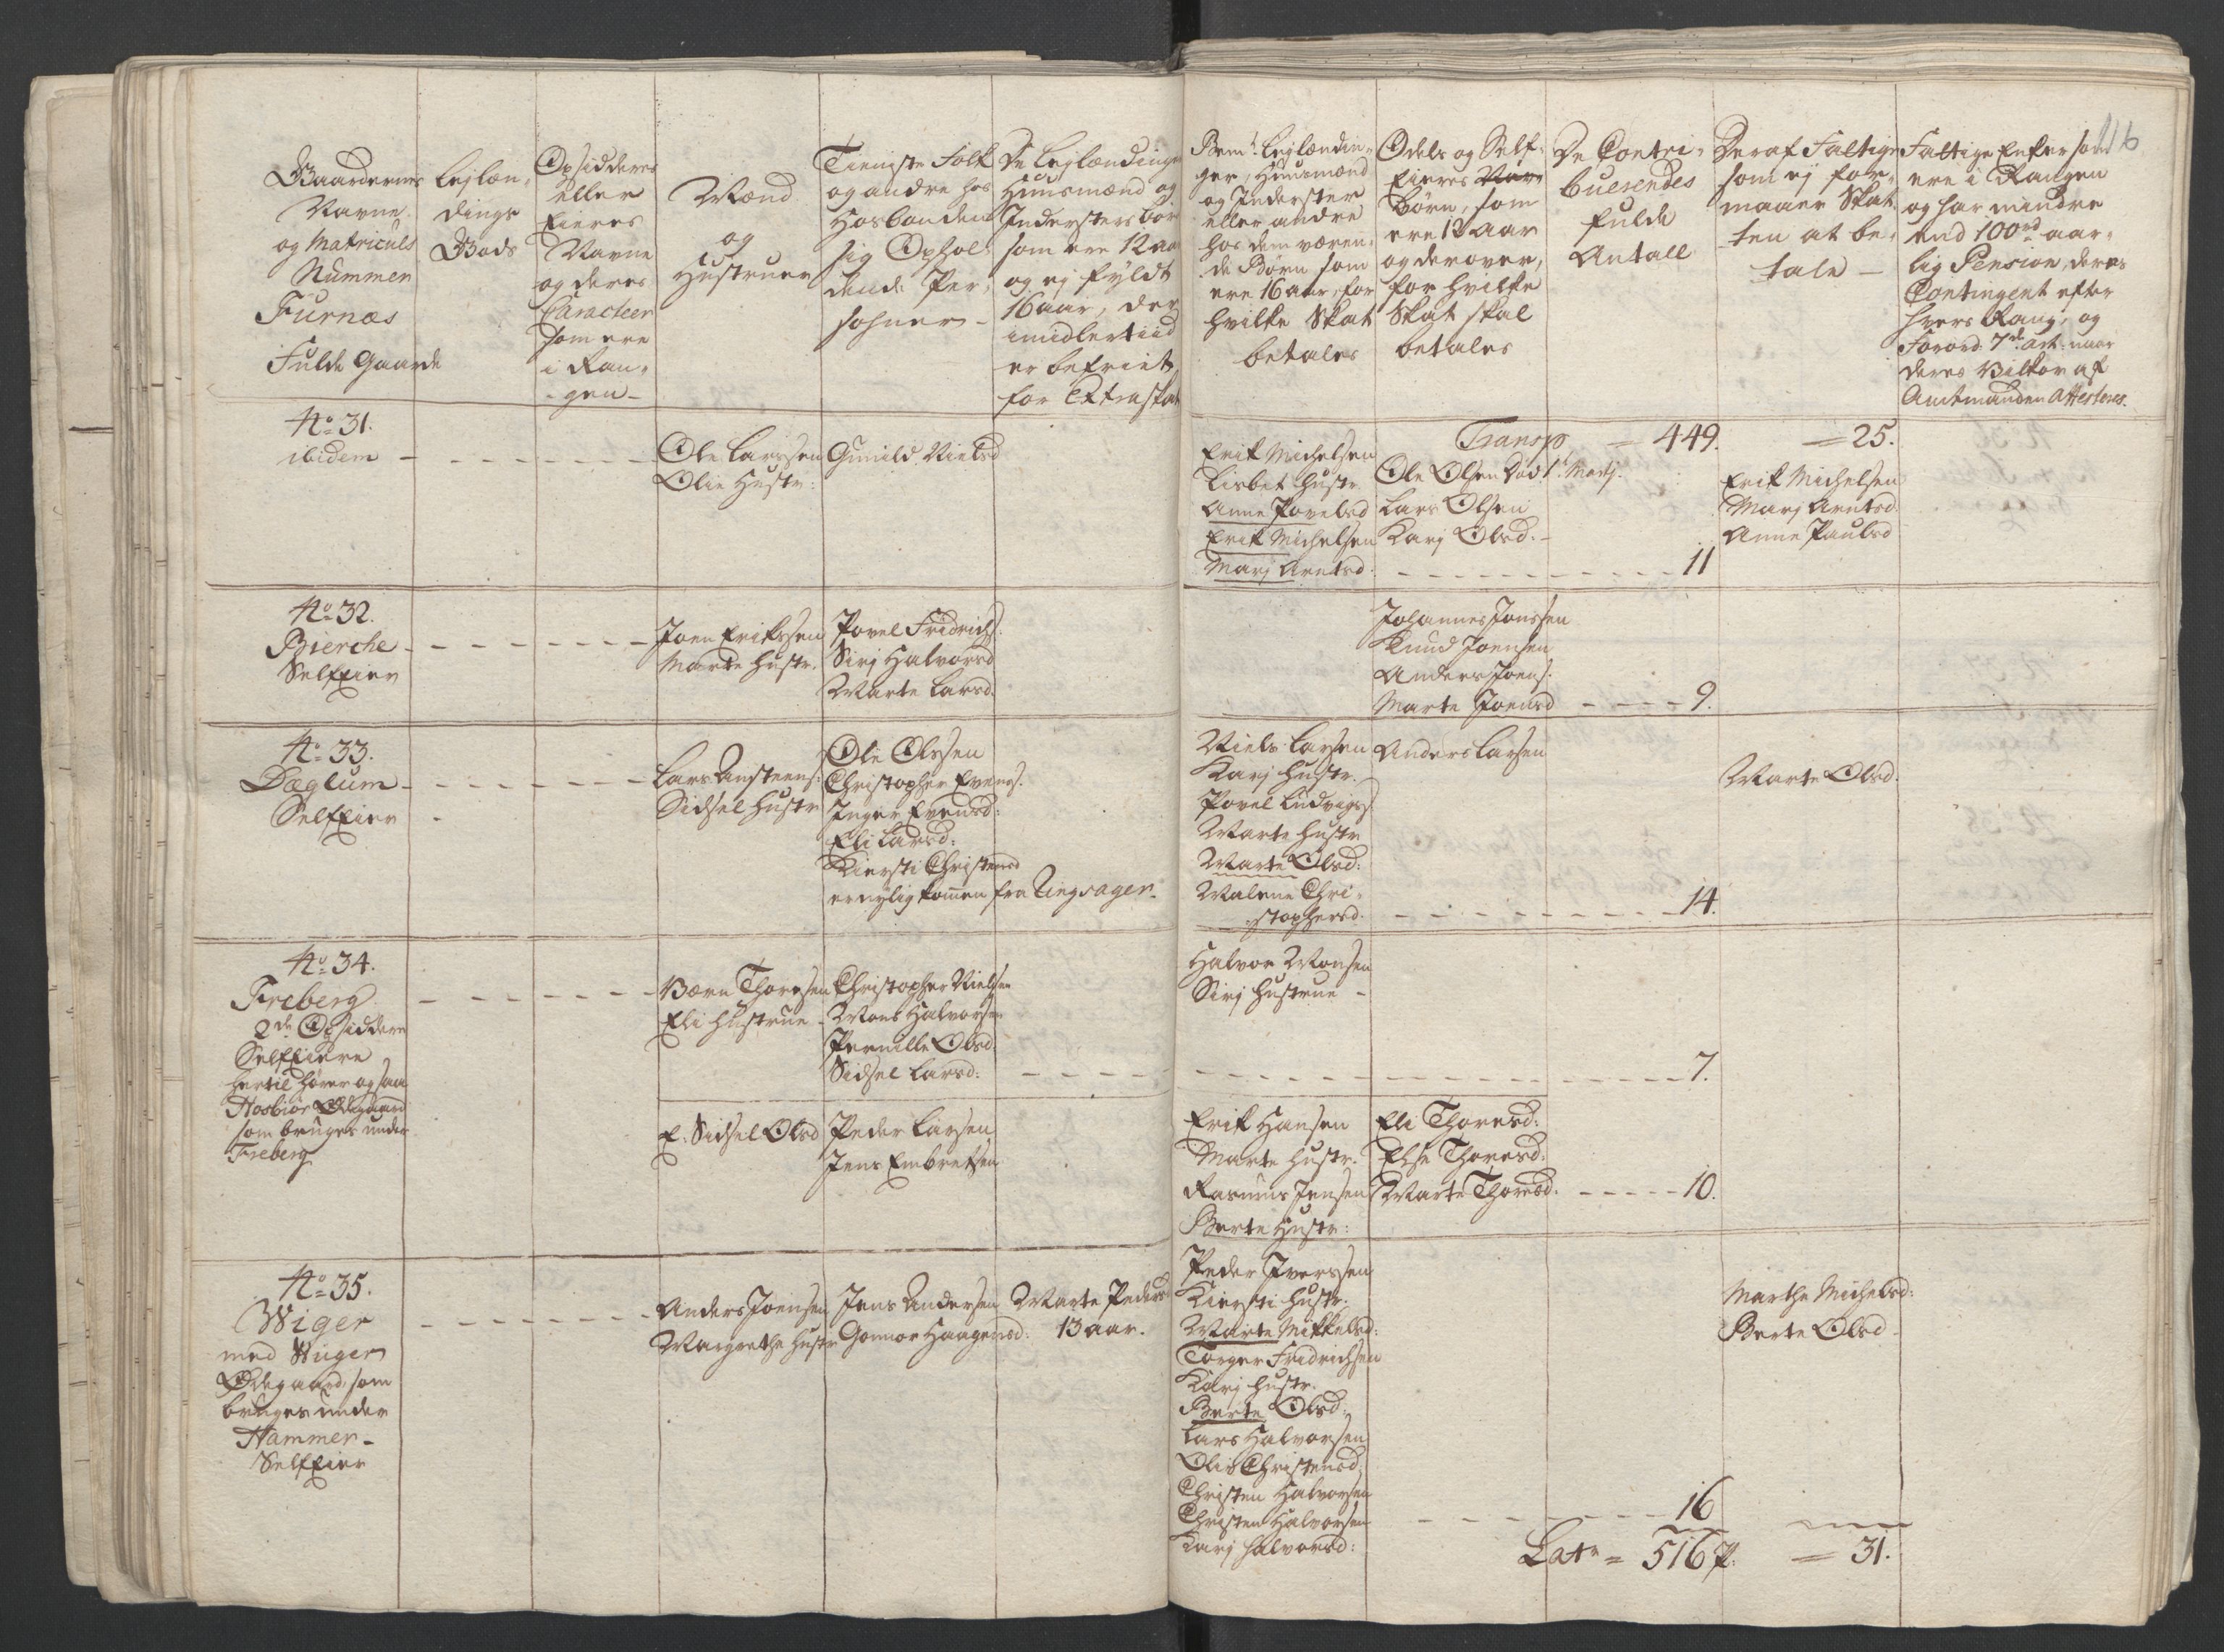 Gaardernes
Navne
og Matriculs
Nummer
Furnæs
Fulde Gaarde
Lejlæn-
dings
Bøds
Opsiddere
eller
Eieres
Navne
og deres
Caracteer
som ere
i Ran-
-gen-
Mænd
og
Hustruer
Tieniste Folk
og andre hos
Hosbonden
sig Ophol-
dende Per-
sohner-
De Lejlændinge
Huusmænd og
Indersters børn
som ere 12 aar
og ej fyldt
16 aar, der
imidlertiid
er befriet
for Extraskat
Bemte Lejlændin-
ger, Huusmænd
og Inderster
eller andre
hos dem væren-
de Børn som
ere 16 aar, for
hvilke Skat
betales
Odels og Self-
Eieres
Børn, som
ere 12 aar
og derover,
for hvilke
Skat skal
betales
De Contri-
buerendes
fulde
Antall
Deraf Fattige
som ej for-
maaer Skat-
ten at be-
tale -
116
Fattige Enker som
ere i Rangen
og har mindre
end 100rd aar-
lig Pension, deres
Contingent efter
hvers Rang, og
Forord: 7de art: naar
deres Vilkor af
Amtmanden Attesteres.
No 31.
ibidem
Ole Larssen
Olia Hustr:
Gunild Nielsd
Erik Michelsen
Lisbet Hustr
Anne Povelsd
Erik Michelsen
Marj Arntsd.
Transp = 449. = 25.
Ole Olsen død 1 Martj.
Lars Olsen
Karj Olsd: -
11
Erik Michelsen
Marj Arntsd.
Anne Paulsd
No 32.
Bierche
Selfeier
Joen Erikssen
Marte Hustr.
Povel Fridrichs.
Sirj Halvorsd
Marte Larsd.
Johannes Jonssen
Knud Joensen
Anders Joens.
Marte Joensd - - - - 9.
No 33.
Dæglum
Selfeier
Lars Ansteens:
Sidsel Hustr
Ole Olssen
Christopher Evens.
Inger Evensd:
Eli Larsd:
Kiersti Christensd
er nylig kommen fra Ringsager-
Niels Larsen
Karj Hustr.
Povel Ludvigs.
Marte Hustr
Marte Olsd:
Malene Chri-
stophersd.
Anders Larsen
14.
Marte Olsd.
No 34.
Freberg
2de Opsiddere
Selfeiere
hertil hører ogsaa
Hosbiør Ødegaard
som bruges under
Freberg
Bærn Thoresen
Eli Hustrue
Christopher Nielsen
Mons Halvorsen
Pernille Olsd.
Sidsel Larsd:
Halvor Monsen
Sirj Hustrue -
7.
E: Sidsel Olsd
Peder Larsen
Jens Embretsen
Erik Hansen
Marte Hustr.
Rasmus Jensen
Berte Hustr:
Eli Thoresd:
Else Thoresd:
Marte Thoresd. - - - - - 10.
No 35.
Wiger
med Wiger
Ødegaard, som
bruges under
Hammer-
Selfeier
Anders Joensen
Margrethe Hustr
Jens Andersen
Gonnor Haagensd:
Marte Pedersd
13 aar.
Peder Iverssen
Kiersti Hustr.
Marte Mikkelsd:
Torger Fridrichsen
Karj Hustr.
Berte Olsd:
Lars Halvorsen
Olia Christensd:
Christen Halvorsen
Christen Halvorsen
Karj Halvorsd:
16
Marthe Michelsd:
Berte Olsd
Latr = 516 P. = 31.